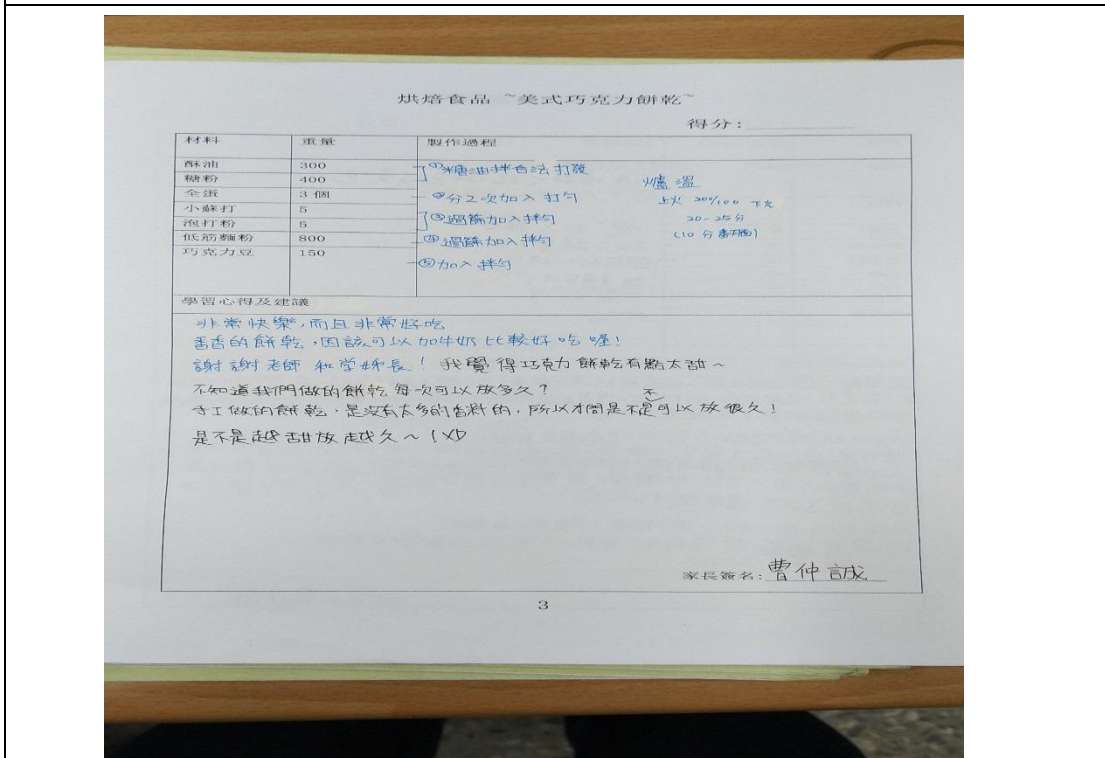 烘焙食品 ~美式巧克力餅乾~
得分：
材料 重量 製作過程
酥油 300 ①糖油拌合法 打發
糖粉 400
全蛋 3 個 ②分2次加入 打勻
小蘇打 5 ③過篩加入拌勻
泡打粉 5
低筋麵粉 800 ④過篩加入拌勻
巧克力豆 150 ⑤加入 拌勻
爐溫
上火 200/100 下火
20-25分
(10分 番面)
學習心得及建議
非常快樂，而且非常好吃
香香的餅乾，因該可以加牛奶比較好吃喔！
謝謝老師 和学姊長！我覺得巧克力餅乾有點太甜～
不知道我們做的餅乾每次可以放多久？
手工做的餅乾，是沒有太多的香料的，所以才問是不是可以放很久！
是不是越甜放越久～！XD
家長簽名：曹仲誠
3